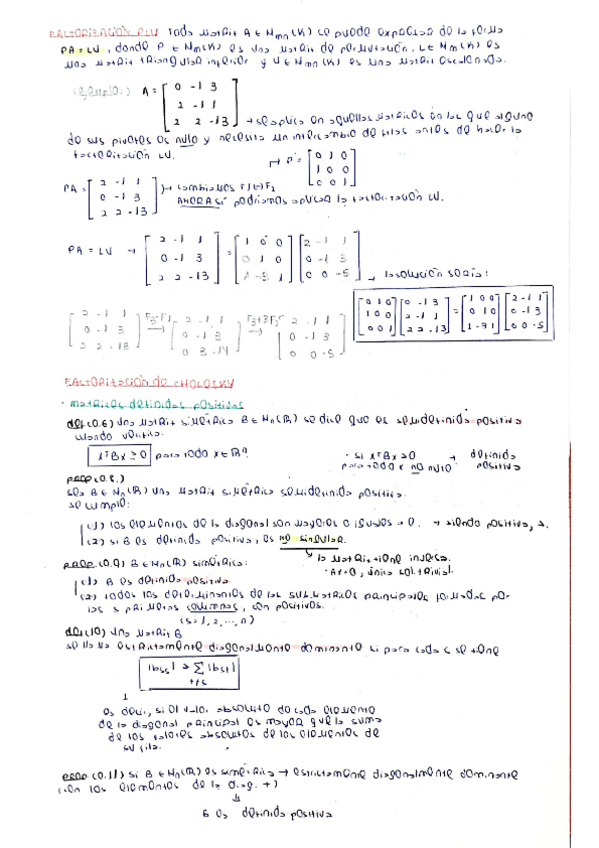 FACTORIZACIÓN PLU Toda matriz A ∈ Mmn(K) se puede expresar de la forma
PA = LU, donde P ∈ Mm(K) es una matriz de permutación, L ∈ Mm(K) es
una matriz triangular inferior y U ∈ Mmn(K) es una matriz escalonada.
(ejemplo:) A = [0 -1 3
2 -1 1
2 2 -13] → se aplica en aquellas matrices en las que alguno
de sus pivotes es nulo y necesita un intercambio de filas antes de hacer la
factorización LU.
→ P = [0 1 0
1 0 0
0 0 1]
PA = [2 -1 1
0 -1 3
2 2 -13] → cambiamos F1↔F2
AHORA SÍ podríamos aplicar la factorización LU.
PA = LU → [2 -1 1
0 -1 3
2 2 -13] = [1 0 0
0 1 0
1 -3 1] [2 -1 1
0 -1 3
0 0 -5] → la solución sería:
[0 1 0
1 0 0
0 0 1] [0 -1 3
2 -1 1
2 2 -13] = [1 0 0
0 1 0
1 -3 1] [2 -1 1
0 -1 3
0 0 -5]
[2 -1 1
0 -1 3
2 2 -13] F3-F1 → [2 -1 1
0 -1 3
0 3 -14] F3+3F2 → [2 -1 1
0 -1 3
0 0 -5]
FACTORIZACIÓN DE CHOLESKY
· matrices definidas positivas
def (0.6) Una matriz simétrica B ∈ Mn(R) se dice que es semidefinida positiva
cuando verifica:
xᵀBx ≥ 0 para todo x ∈ Rⁿ. · si xᵀBx > 0 → definida
para todo x no nulo positiva
prop (0.8.)
Sea B ∈ Mn(R) una matriz simétrica semidefinida positiva.
se cumple:
(1) los elementos de la diagonal son mayores o iguales a 0. → siendo positiva, >.
(2) si B es definida positiva, es no singular.
↳ la matriz tiene inversa.
· Ax=0, única sol. trivial.
prop (0.9) B ∈ Mn(R) simétrica:
(1) B es definida positiva.
(2) todos los determinantes de las submatrices principales formadas por
las s primeras columnas, son positivos.
(s = 1, 2, ..., n)
def (10) Una matriz B
se llama estrictamente diagonalmente dominante si para cada s se tiene
|bss| > ∑ |bst|
t≠s
↓
es decir, si el valor absoluto de cada elemento
de la diagonal principal es mayor que la suma
de los valores absolutos de los elementos de
su fila.
prop (0.11) si B ∈ Mn(R) es simétrica → estrictamente diagonalmente dominante
(con los elementos de la diag. +)
↓
B es definida positiva